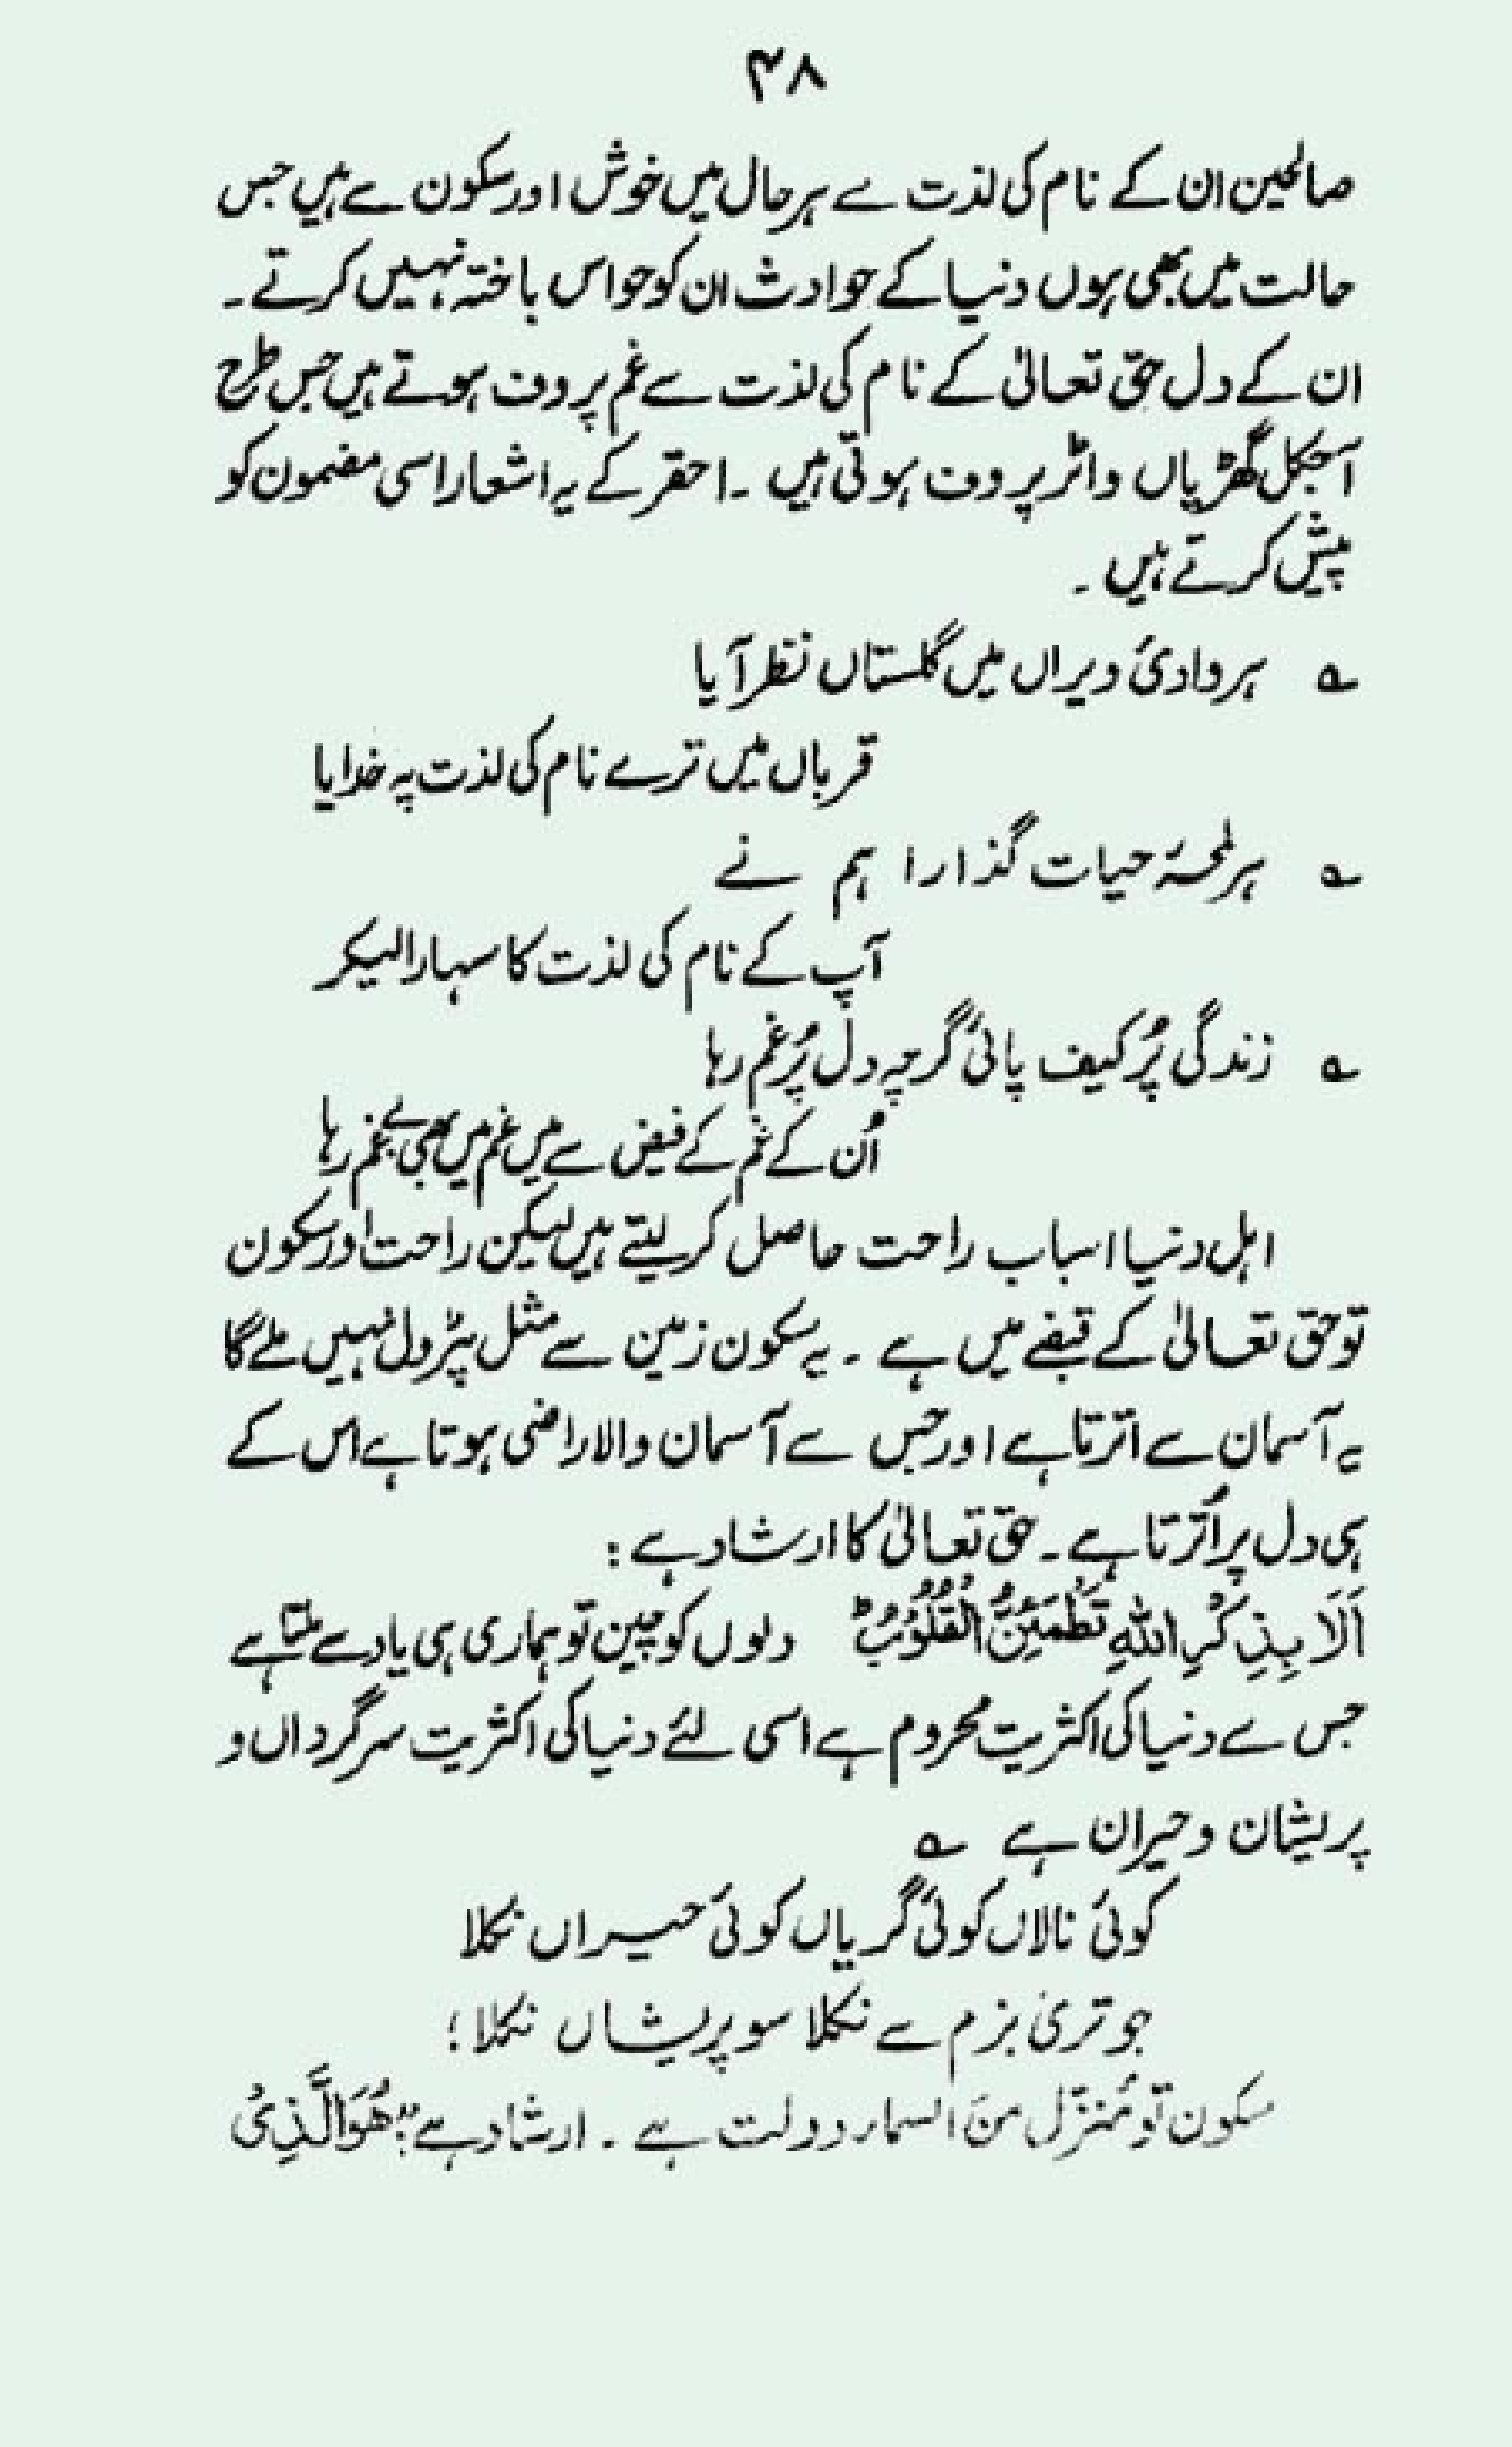 ۳۸
صالحین ان کے نام کی لذت سے ہر حال میں خوش اور سکون سے ہیں جس
حالت میں بھی ہوں دنیا کے حوادث ان کو حواس باختہ نہیں کرتے۔
ان کے دل حق تعالیٰ کے نام کی لذت سے غم پروف ہوتے ہیں جس طرح
آجکل گھڑیاں واٹر پروف ہوتی ہیں ۔ احقر کے یہ اشعار اسی مضمون کو
پیش کرتے ہیں ۔
؎ ہر وادیٔ ویراں میں گلستاں نظر آیا
قرباں میں ترے نام کی لذت پہ خدایا
؎ ہر لمحۂ حیات گذارا ہم نے
آپ کے نام کی لذت کا سہارا لیکر
؎ زندگی پُرکیف پائی گرچہ دل پُرغم رہا
اُن کے غم کے فیض سے میں غم میں بھی بے غم رہا
اہل دنیا اسباب راحت حاصل کر لیتے ہیں لیکن راحت اور سکون
تو حق تعالیٰ کے قبضے میں ہے ۔ یہ سکون زمین سے مثل پیٹرول نہیں ملے گا
یہ آسمان سے اترتا ہے اور جس سے آسمان والا راضی ہوتا ہے اس کے
ہی دل پر اُترتا ہے ۔ حق تعالیٰ کا ارشاد ہے :
اَلَا بِذِكْرِ اللّٰهِ تَطْمَئِنُّ الْقُلُوْبُ ؕ دلوں کو چین تو ہماری ہی یاد سے ملتا ہے
جس سے دنیا کی اکثریت محروم ہے اسی لئے دنیا کی اکثریت سرگرداں و
پریشان و حیران ہے ؎
کوئی نالاں کوئی گریاں کوئی حیراں نکلا
جو تری بزم سے نکلا سو پریشاں نکلا ؛
سکون تو مُنزّل منَ السماء دولت ہے ۔ ارشاد ہے :" هُوَ الَّذِیْ